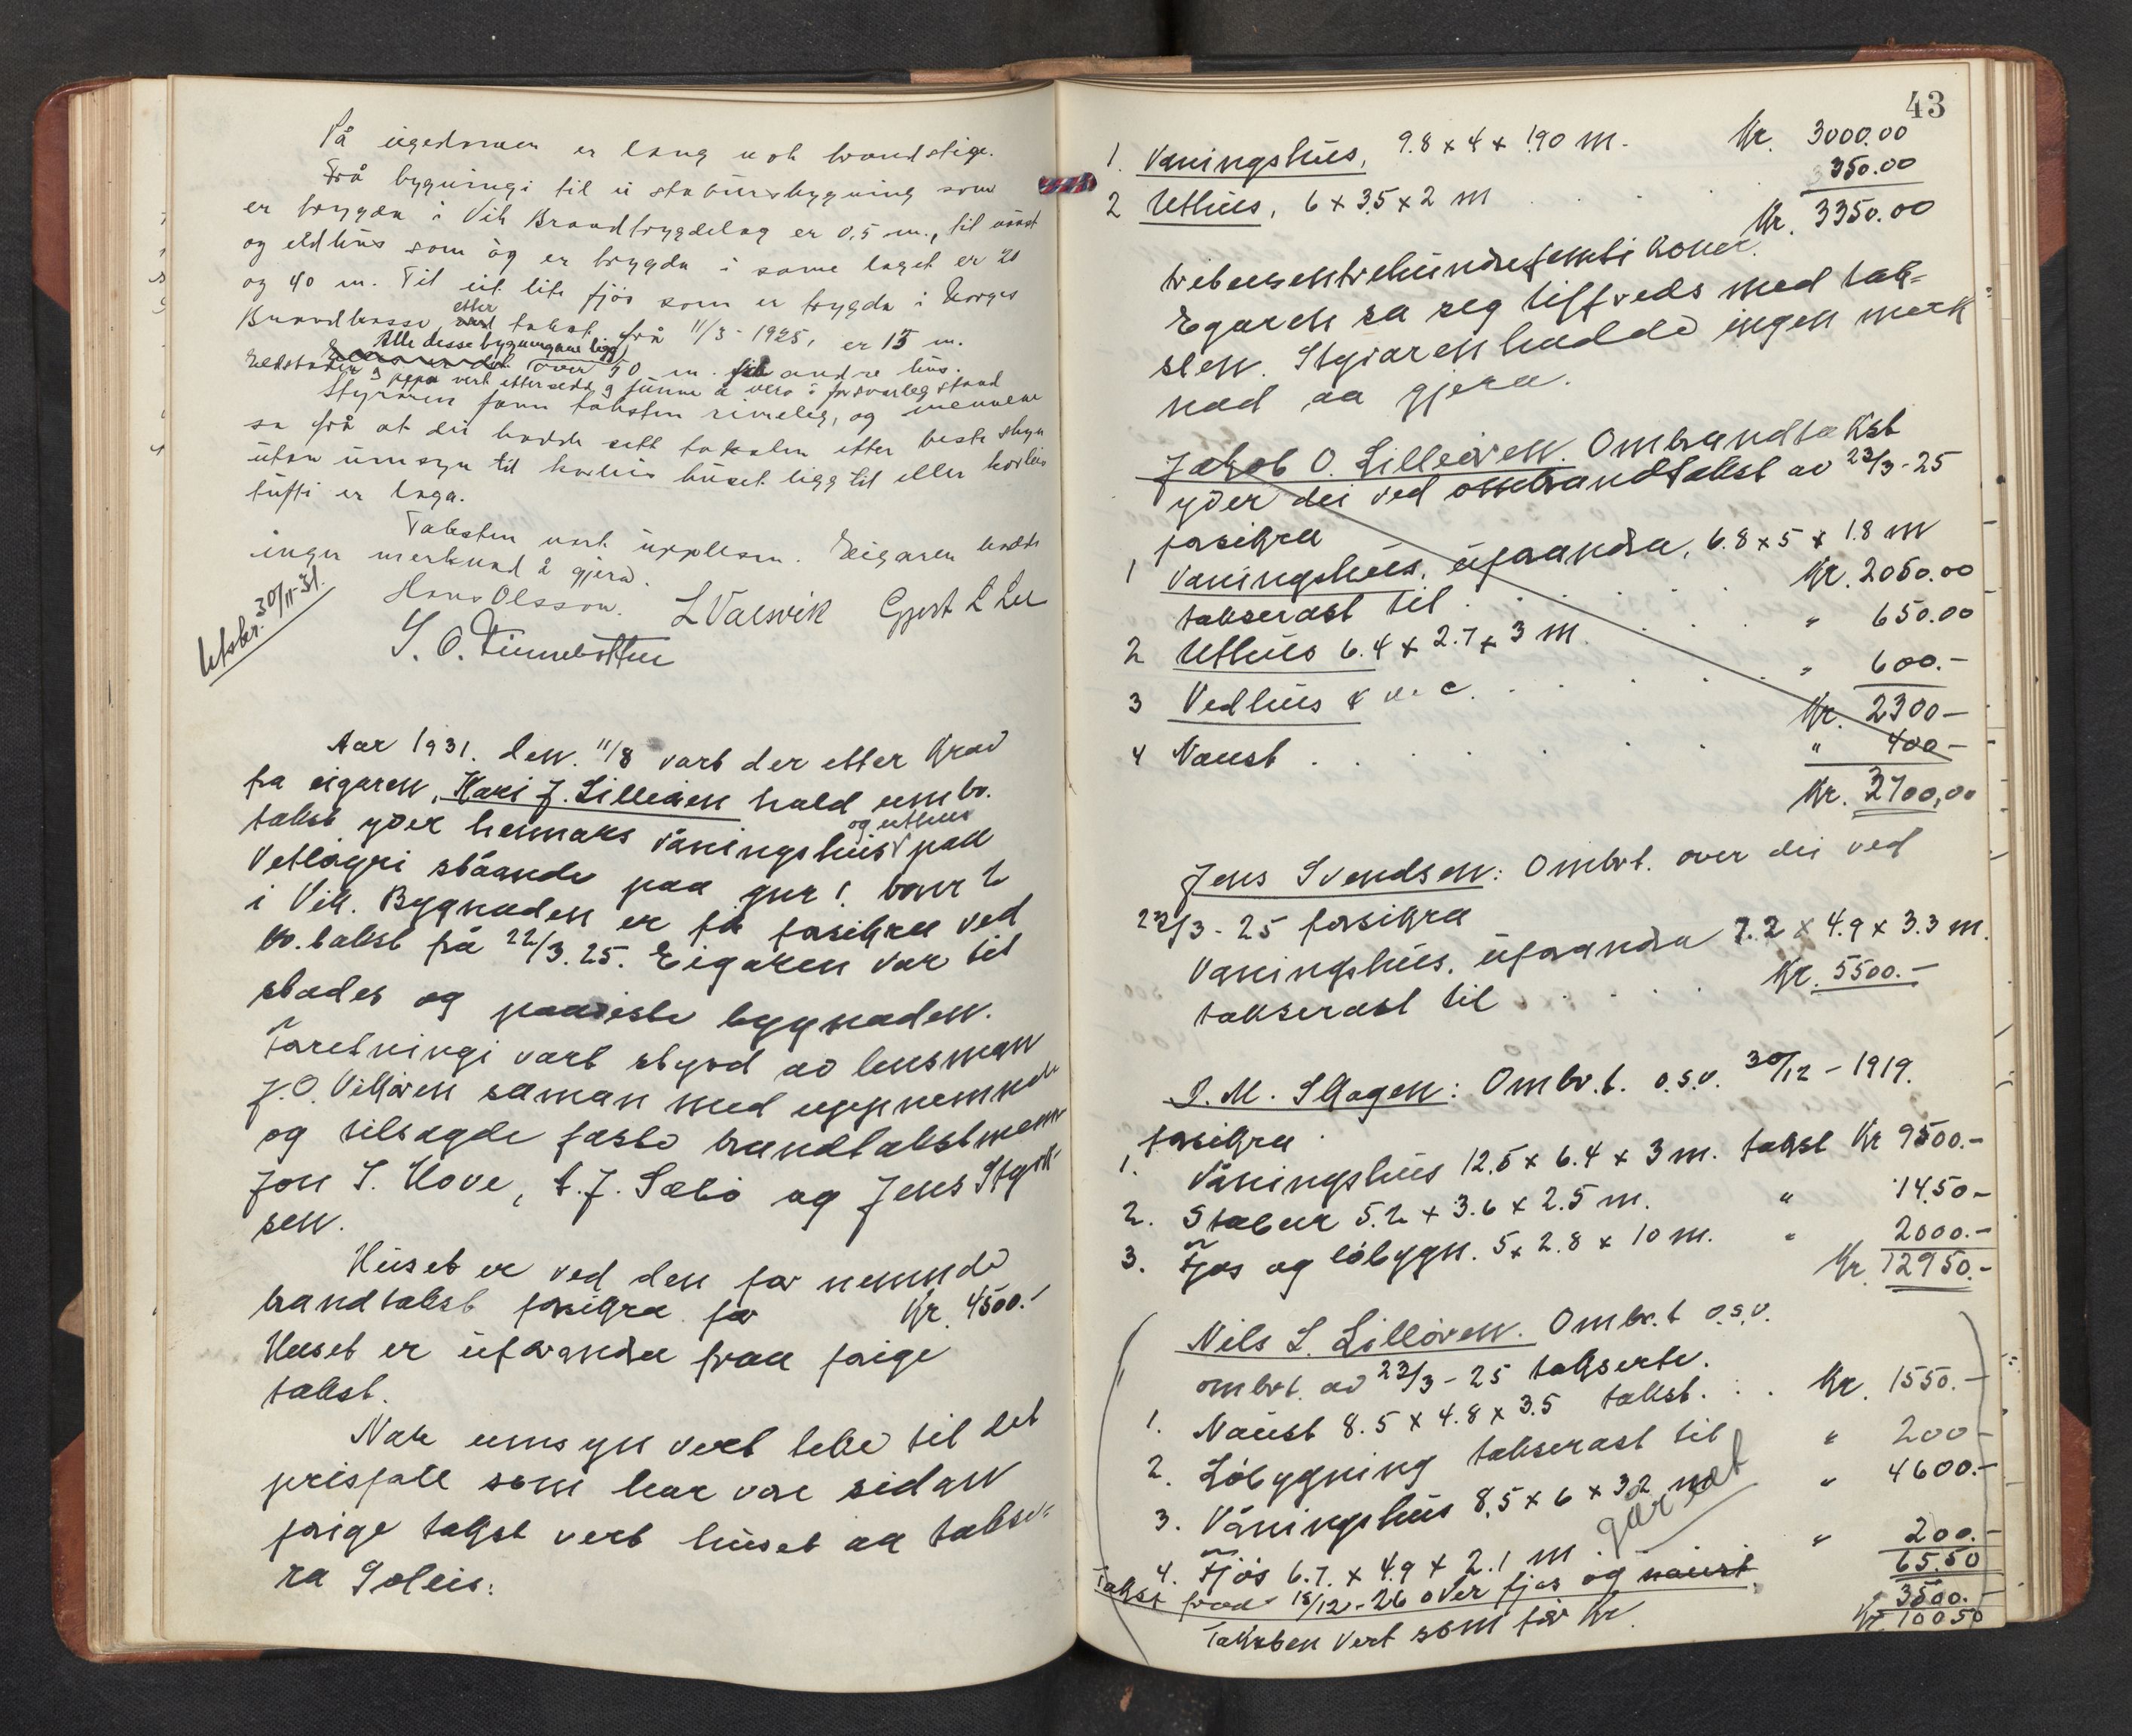 På eigedomen er lang nok brandstige.
Frå bygningi til ei stabursbygning som
er trygda i Vik Brandtrygdelag er 0,5 m., til naust
og eldhus som òg er trygda i same laget er 20
og 40 m. Til eit lite fjøs som er trygda i Norges
Brandkasse etter takst frå 11/3-1925, er 15 m.
Alle desse bygningane ligg
over 50 m. frå andre hus.
Eldstader og pipa vart ettersedde og funne å vera i forsvarleg stand
Styraren fann taksten rimeleg, og mennene
sa frå at dei hadde sett taksten etter beste skyn
utan umsyn til korleis huset ligg til eller korleis
tufti er laga.
Taksten vart upplesen. Eigaren hadde
ingen merknad å gjera.
Hans Olsson. L Valsvik Gjert L Lee
S. O. Finnebotten
Utskr. 30/11-31.
Aar 1931. den. 11/8 vart der etter krav
fra eigaren, Kari J. Lilleøien hald umbr.
takst yver hennars våningshus og uthus paa
Vetløyri ståande paa gnr 1. bnr 2
i Vik. Bygnaden er få forsikra ved
br.takst frå 22/3.25. Eigaren var til
stades og paaviste bygnaden.
Forretningi vart styrd av lensman
J.O. Vetløren saman med uppnemnde
og tilsagde faste brandtakstmenn
Jon S. Hove, A. J. Sæbø og Jens Styrk-
sen.
Huset er ved den før nemnde
brandtakst forsikra for Kr. 4500.-
Huset er uforandra fraa forige
takst.
Nar umsyn vert teke til det
prisfall som har vore sidan
forige takst vert huset aa takse-
ra soleis:
43
1. Vaningshus, 9.8 x 4 x 1.90 m. Kr. 3000.00
2 Uthus, 6 x 3.5 x 2 m 350.00
Kr. 3350.00
tretusentrehundrefemti kroner.
Egaren sa seg tilfreds med tak-
sten. Styraren hadde ingen merk
nad aa gjera.
Jakob O. Lilleøren. Ombrandtakst
yver dei ved ombrandtakst av 23/3-25
forsikra
1 Vaningshus, uforandra, 6.8 x 5 x 1.8 m
takserast til Kr. 2050.00
2 Uthus 6.4 x 2.7 x 3 m. " 650.00
3 Vedhus " 600.-
Kr. 2300-
4 Naust " 400-
Kr. 2700,00
Jens Svendsen: Ombrt. over dei ved
22/3-25 forsikra
Vaningshus, uforandra 7.2 x 4.9 x 3.3 m.
takserast til Kr. 5500.-
J. M. Skagen: Ombr.t. o.s.v. 30/12-1919.
forsikra
1. Våningshus 12.5 x 6.4 x 3 m. takst Kr 9500.-
2. Stabur 5.2 x 3.6 x 2.5 m. " 1450-
3. Fjøs og løbygn. 5 x 2.8 x 10 m. " 2000.-
Kr. 12950.-
Nils L. Lilløren. Ombr.t o.s.v.
ombrt. av 23/3-25 takserte.
1. Naust 8.5 x 4.8 x 3.5 takst. Kr. 1550.-
2. Løbygning takserast til " 200-
3. Våningshus 8.5 x 6 x 3.2 m " 4600.-
4. Fjøs 6.7. x 4.9 x 2.1 m " 200.-
6550
Takst fraa 18/12-26 over fjøs og naust 3500.-
Taksten vert som før Kr. Kr. 10050